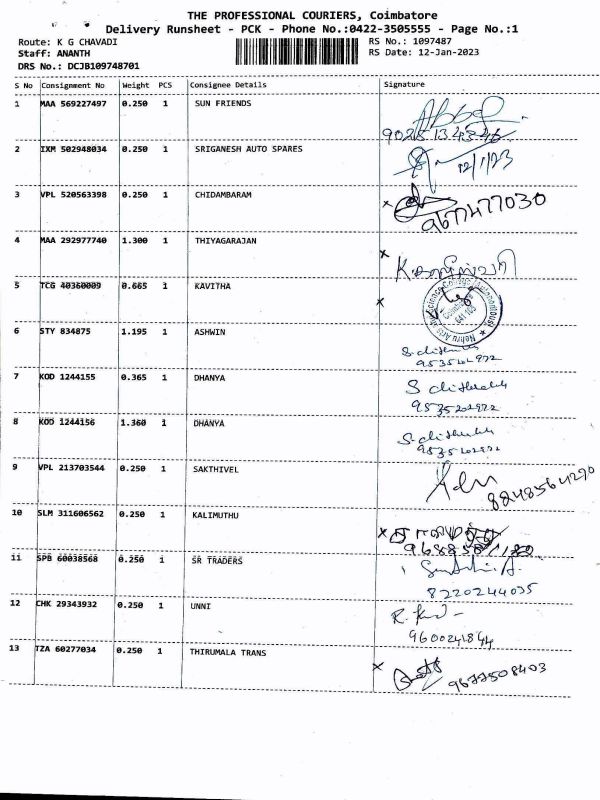 THE PROFESSIONAL COURIERS, Coimbatore
Delivery Runsheet - PCK - Phone No.:0422-3505555 - Page No.:1
Route: K G CHAVADI
RS No.: 1097487
Staff: ANANTH
RS Date: 12-Jan-2023
DRS No.: DCJB109748701
S No Consignment No Weight PCS Consignee Details Signature
1 MAA 569227497 0.250 1 SUN FRIENDS
2 IXM 502948034 0.250 1 SRIGANESH AUTO SPARES
12/1/23
3 VPL 520563398 0.250 1 CHIDAMBARAM
9677477030
4 MAA 292977740 1.300 1 THIYAGARAJAN
5 TCG 40360009 0.665 1 KAVITHA
6 STY 834875 1.195 1 ASHWIN
7 KOD 1244155 0.365 1 DHANYA
9535202922
8 KOD 1244156 1.360 1 DHANYA
9 VPL 213703544 0.250 1 SAKTHIVEL
8248564290
10 SLM 311606562 0.250 1 KALIMUTHU
11 SPB 60038568 0.250 1 SR TRADERS
8220244035
12 CHK 29343932 0.250 1 UNNI
9600241844
13 TZA 60277034 0.250 1 THIRUMALA TRANS
9677508403